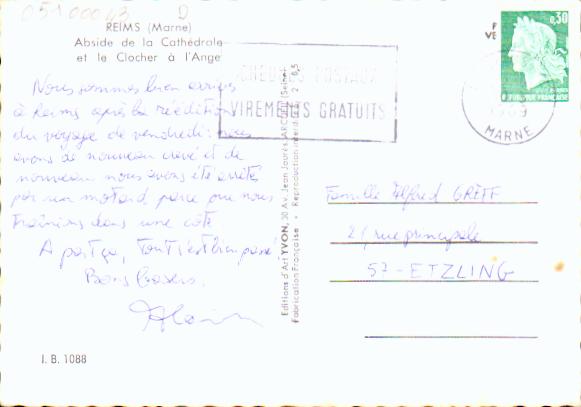 05100043 D
REIMS (Marne)
Abside de la Cathédrale
et le Clocher à l'Ange
Nous sommes bien arrivés
à Reims après la réédition
du voyage de vendredi : nous
avons de nouveau crevé et de
nouveau nous avons été arrêtés
par un motard parce que nous
traînions dans une côte.
A part ça, tout s'est bien passé
Bons baisers.
Alain
I. B. 1088
Editions d'Art YVON, 30 Av. Jean Jaurès, ARCUEIL (Seine)
Fabrication Française • Reproduction interdite
CHEQUES POSTAUX
VIREMENTS GRATUITS
0,30
MARNE
Famille Alfred GREFF
rue principale
57 - ETZLING